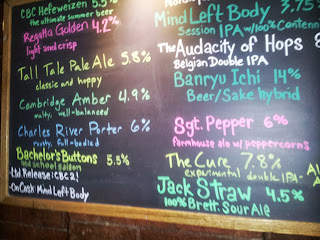 CBC Hefeweizen 5.5%
the ultimate summer beer
Regatta Golden 4.2%
light and crisp
Tall Tale Pale Ale 5.8%
classic and hoppy
Cambridge Amber 4.9%
nutty, well-balanced
Charles River Porter 6%
roasty, full-bodied
Bachelor's Buttons 5.5%
old school saison
Ltd Release: CBC2!
On Cask: Mind Left Body
Mind Left Body 3.75%
Session IPA w/100% Centenn
The Audacity of Hops 8
Belgian Double IPA
Banryu Ichi 14%
Beer/Sake hybrid
Sgt. Pepper 6%
farmhouse ale w/ peppercorns
The Cure 7.8%
experimental double IPA-
Jack Straw 4.5%
100% Brett. Sour Ale